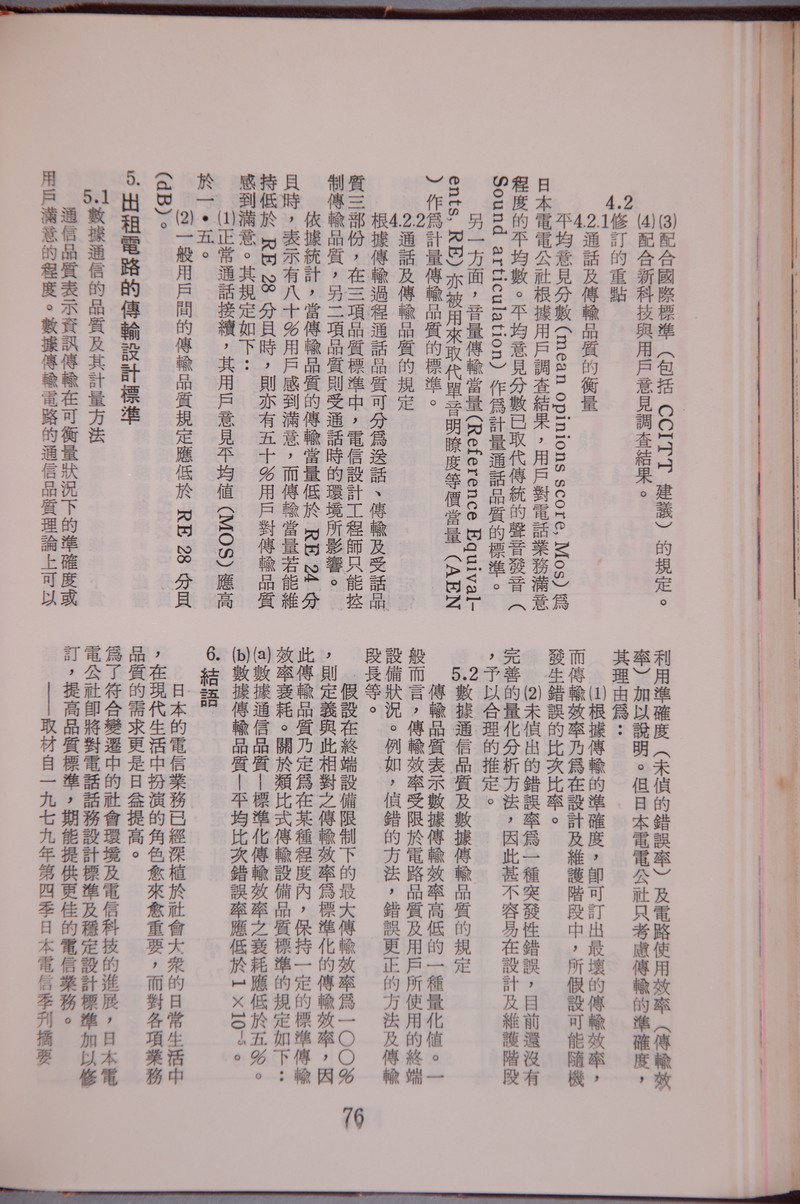 (3)配合國際標準（包括 CCITT 建議）的規定。
(4)配合新科技與用戶意見調查結果。
4.2修訂的重點
4.2.1通話及傳輸品質的衡量
平均意見分數(mean opinions score, Mos)爲
日本電電公社根據用戶調查結果，用戶對電話業務滿意
程度的平均數。平均意見分數已取代傳統的聲音發音（
Sound articulation）作爲計量通話品質的標準。
另一方面，音量傳輸當量(Reference Equival-
ents, RE)亦被用來取代單音明瞭度等價當量（AEN
）作爲計量傳輸品質的標準。
4.2.2通話及傳輸品質的規定
根據傳輸過程通話品質可分爲送話、傳輸及受話品
質三部份，在三項品質標準中，電信設計工程師只能控
制傳輸品質，另二項品質則受通話時的環境所影響。
依據統計，當傳輸品質的傳輸當量低於 RE 24 分
貝時，表示有八十%用戶感到滿意，而傳輸當量若能維
持低於 RE 28 分貝時，則亦有五十%用戶對傳輸品質
感到滿意。其規定如下：
(1)正常通話接續，其用戶意見平均値(MOS)應高
於一•五。
(2)一般用戶間的傳輸品質規定應低於 RE 28 分貝
(dB)。
5. 出租電路的傳輸設計標準
5.1 數據通信的品質及其計量方法
通信品質表示資訊傳輸在可衡量狀況下的準確度或
用戶滿意的程度。數據傳輸電路的通信品質理論上可以
利用準確度（未偵的錯誤率）及電路使用效率（傳輸效
率）加以說明。但日本電電公社只考慮傳輸的準確度，
其理由爲：
(1)根據傳輸的準確度，卽可訂出最壞的傳輸效率，
而傳輸效率乃爲在設計及維護階段中，所假設可能隨機
發生錯誤的比次比率。
(2)未偵出的錯誤率爲一種突發性錯誤，目前還沒有
完善的量化分析方法，因此甚不容易在設計及維護階段
，予以合理的推定。
5.2 數據通信品質及數據傳輸品質的規定
傳輸品質表示數據傳輸效率高低的一種量化値。一
般而言，傳輸效率受限於電路品質及用戶所使用的終端
設備狀況。例如，偵錯的方法，錯誤更正的方法及傳輸
段長等。
假設在終端設備限制下的最大傳輸效率爲一〇〇%
，則定義與此相對之傳輸效率爲標準化的傳輸效率，因
此傳輸品質乃定爲在某種程度內，保持一定的標準傳輸
效率衰耗。關於類比式傳輸設備品質標準的規定如下：
(a)數據通信品質—標準化傳輸效率之衰耗應低於五%。
(b)數據傳輸品質—平均比次錯誤率應低於 1×10⁻⁵。
6. 結語
日本的電信業務已經深植於社會大衆的日常生活中
，在現代生活中扮演的角色愈來愈重要，而對各項業務
品質的需求更是日益提高。
爲了符合變遷中的社會環境及電信科技的進展，日本電
電公社卽將對電話話務設計標準及穩定設計標準加以修
訂，提高品質標準，期能提供更佳的電信業務。
——取材自一九七九年第四季日本電信季刊摘要
76